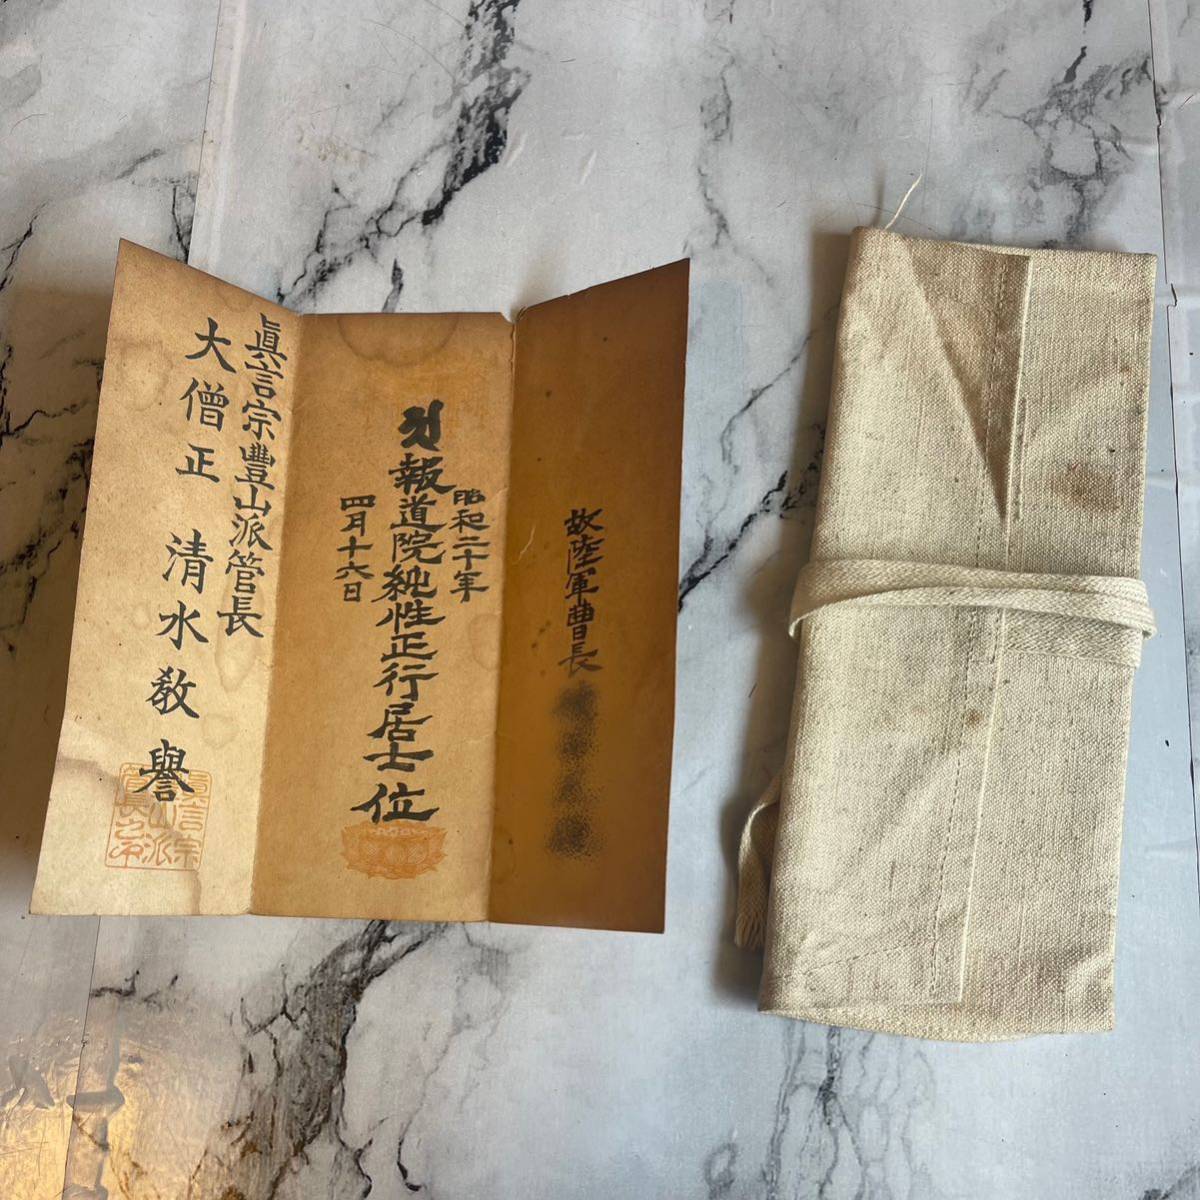 故陸軍曹長
昭和二十年
報道院純性正行居士位
四月十六日
眞言宗豐山派管長
大僧正 清水教譽
眞言宗
豐山派
管長之印